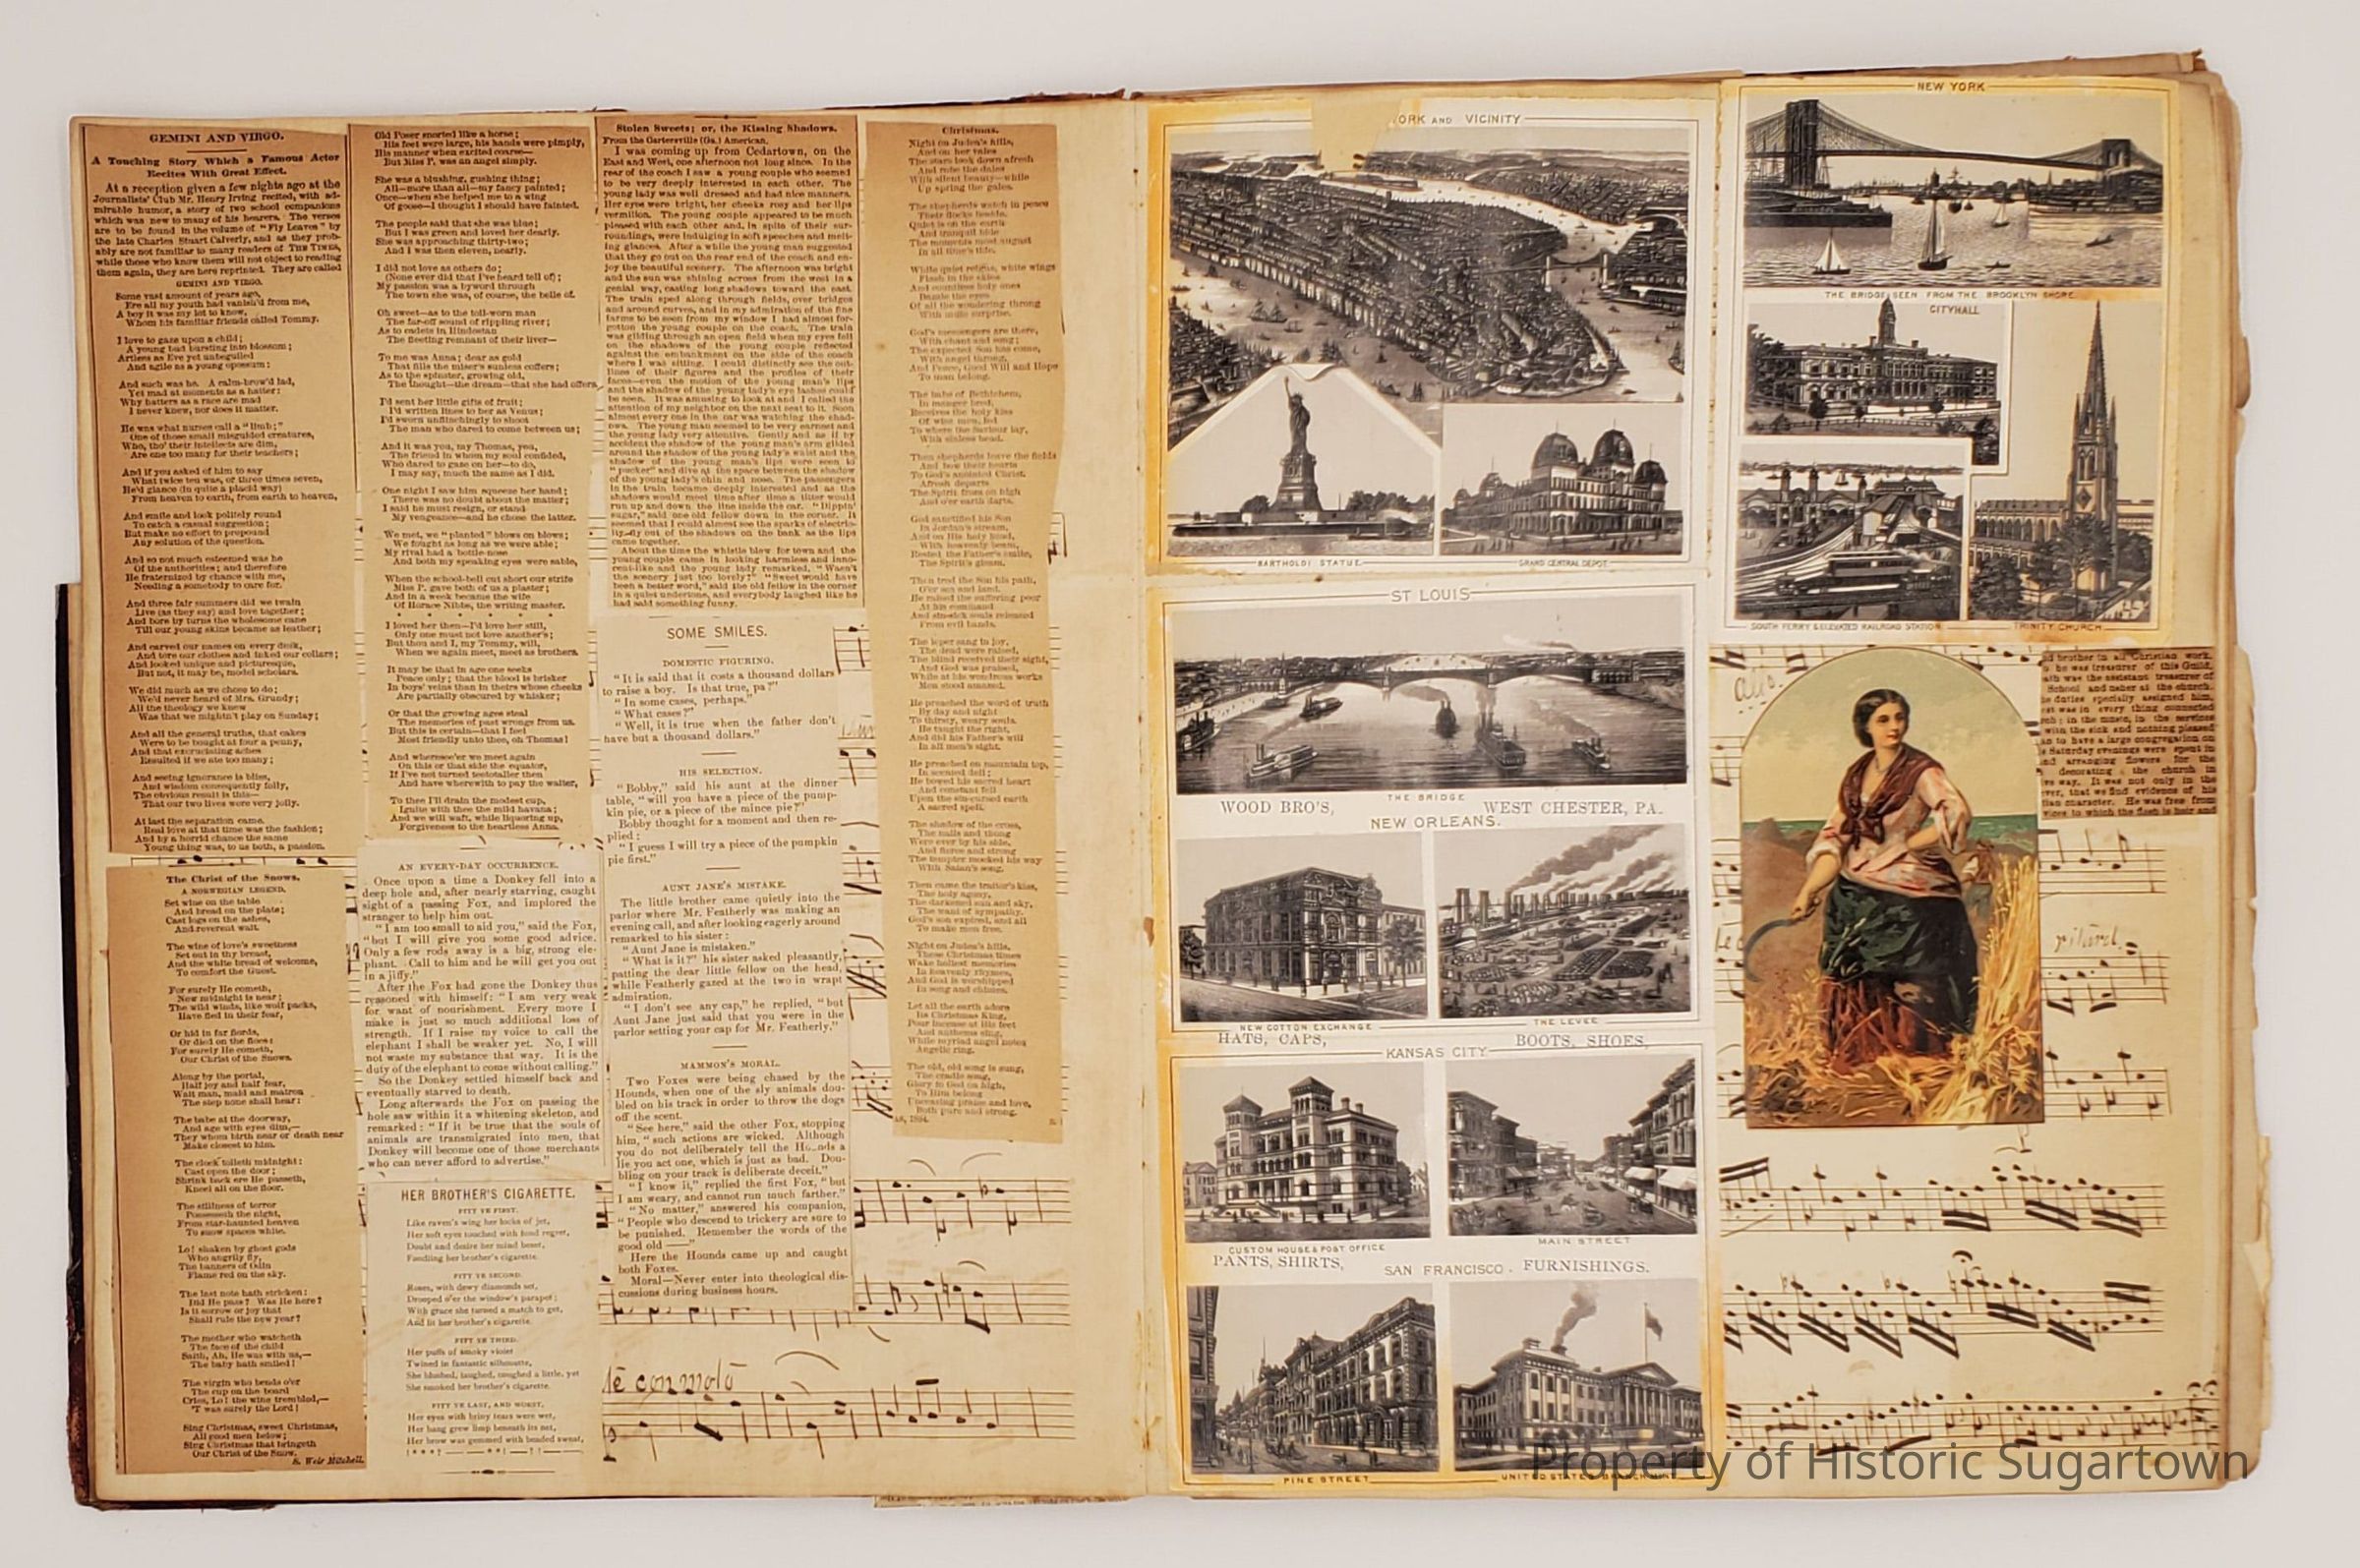 GEMINI AND VIRGO.
A Touching Story Which a Famous Actor
Recites With Great Effect.
At a reception given a few nights ago at the
Journalists' Club Mr. Henry Irving recited, with ad-
mirable humor, a story of two school companions
which was new to many of his hearers. The verses
are to be found in the volume of "Fly Leaves" by
the late Charles Stuart Calverly, and as they prob-
ably are not familiar to many readers of THE TIMES,
while those who know them will not object to reading
them again, they are here reprinted. They are called
GEMINI AND VIRGO.
Some vast amount of years ago,
Ere all my youth had vanish'd from me,
A boy it was my lot to know,
Whom his familiar friends called Tommy.
I love to gaze upon a child;
A young bud bursting into blossom;
Artless as Eve yet unbeguiled
And agile as a young opossum:
And such was he. A calm-brow'd lad,
Yet mad at moments as a hatter:
Why hatters as a race are mad
I never knew, nor does it matter.
He was what nurses call a "limb;"
One of those small misguided creatures,
Who, tho' their intellects are dim,
Are one too many for their teachers;
And if you asked of him to say
What twice ten was, or three times seven,
He'd glance (in quite a placid way)
From heaven to earth, from earth to heaven,
And smile and look politely round
To catch a casual suggestion;
But make no effort to propound
Any solution of the question.
And so not much esteemed was he
Of the authorities; and therefore
He fraternized by chance with me,
Needing a somebody to care for.
And three fair summers did we twain
Live (as they say) and love together;
And bore by turns the wholesome cane
Till our young skins became as leather;
And carved our names on every desk,
And tore our clothes and inked our collars;
And looked unique and picturesque,
But not, it may be, model scholars.
We did much as we chose to do;
We'd never heard of Mrs. Grundy;
All the theology we knew
Was that we mightn't play on Sunday;
And all the general truths, that cakes
Were to be bought at four a penny,
And that excruciating aches
Resulted if we ate too many;
And seeing ignorance is bliss,
And wisdom consequently folly,
The obvious result is this—
That our two lives were very jolly.
At last the separation came.
Real love at that time was the fashion;
And by a horrid chance the same
Young thing was, to us both, a passion.
The Christ of the Snows.
A NORWEGIAN LEGEND.
Set wine on the table
And bread on the plate;
Cast logs on the ashes,
And reverent wait.
The wine of love's sweetness
Set out in thy breast,
And the white bread of welcome,
To comfort the Guest.
For surely He cometh,
Now midnight is near;
The wild winds, like wolf packs,
Have fled in their fear,
Or hid in far fiords,
Or died on the floes:
For surely He cometh,
Our Christ of the Snows.
Along by the portal,
Half joy and half fear,
Wait man, maid and matron
The step none shall hear:
The babe at the doorway,
And age with eyes dim,—
They whom birth near or death near
Make closest to him.
The clock tolleth midnight:
Cast open the door;
Shrink back ere He passeth,
Kneel all on the floor.
The stillness of terror
Possesseth the night,
From star-haunted heaven
To snow spaces white.
Lo! shaken by ghost gods
Who angrily fly,
The banners of Odin
Flame red on the sky.
The last note hath stricken:
Did He pass? Was He here?
Is it sorrow or joy that
Shall rule the new year?
The mother who watcheth
The face of the child
Saith, Ah, He was with us,—
The baby hath smiled!
The virgin who bends o'er
The cup on the board
Cries, Lo! the wine trembled,—
'T was surely the Lord!
Sing Christmas, sweet Christmas,
All good men below;
Sing Christmas that bringeth
Our Christ of the Snow.
S. Weir Mitchell.
Old Poser snorted like a horse;
His feet were large, his hands were pimply,
His manner when excited coarse—
But Miss P. was an angel simply.
She was a blushing, gushing thing;
All—more than all—my fancy painted;
Once—when she helped me to a wing
Of goose—I thought I should have fainted.
The people said that she was blue;
But I was green and loved her dearly.
She was approaching thirty-two;
And I was then eleven, nearly.
I did not love as others do;
(None ever did that I've heard tell of);
My passion was a byword through
The town she was, of course, the belle of.
Oh sweet—as to the toil-worn man
The far-off sound of rippling river;
As to cadets in Hindostan
The fleeting remnant of their liver—
To me was Anna; dear as gold
That fills the miser's sunless coffers;
As to the spinster, growing old,
The thought—the dream—that she had offers.
I'd sent her little gifts of fruit;
I'd written lines to her as Venus;
I'd sworn unflinchingly to shoot
The man who dared to come between us;
And it was you, my Thomas, you,
The friend in whom my soul confided,
Who dared to gaze on her—to do,
I may say, much the same as I did.
One night I saw him squeeze her hand;
There was no doubt about the matter;
I said he must resign, or stand
My vengeance—and he chose the latter.
We met, we "planted" blows on blows;
We fought as long as we were able;
My rival had a bottle-nose
And both my speaking eyes were sable,
When the school-bell cut short our strife
Miss P. gave both of us a plaster;
And in a week became the wife
Of Horace Nibbs, the writing master.
I loved her then—I'd love her still,
Only one must not love another's;
But thou and I, my Tommy, will,
When we again meet, meet as brothers.
It may be that in age one seeks
Peace only; that the blood is brisker
In boys' veins than in theirs whose cheeks
Are partially obscured by whisker;
Or that the growing ages steal
The memories of past wrongs from us.
But this is certain—that I feel
Most friendly unto thee, oh Thomas!
And wheresoe'er we meet again
On this or that side the equator,
If I've not turned teetotaller then
And have wherewith to pay the waiter,
To thee I'll drain the modest cup,
Ignite with thee the mild havana;
And we will waft, while liquoring up,
Forgiveness to the heartless Anna.
AN EVERY-DAY OCCURRENCE.
Once upon a time a Donkey fell into a
deep hole and, after nearly starving, caught
sight of a passing Fox, and implored the
stranger to help him out.
"I am too small to aid you," said the Fox,
"but I will give you some good advice.
Only a few rods away is a big, strong ele-
phant. Call to him and he will get you out
in a jiffy."
After the Fox had gone the Donkey thus
reasoned with himself: "I am very weak
for want of nourishment. Every move I
make is just so much additional loss of
strength. If I raise my voice to call the
elephant I shall be weaker yet. No, I will
not waste my substance that way. It is the
duty of the elephant to come without calling."
So the Donkey settled himself back and
eventually starved to death.
Long afterwards the Fox on passing the
hole saw within it a whitening skeleton, and
remarked: "If it be true that the souls of
animals are transmigrated into men, that
Donkey will become one of those merchants
who can never afford to advertise."
HER BROTHER'S CIGARETTE.
FITT YE FIRST.
Like raven's wing her locks of jet,
Her soft eyes touched with fond regret,
Doubt and desire her mind beset,
Fondling her brother's cigarette.
FITT YE SECOND.
Roses, with dewy diamonds set,
Drooped o'er the window's parapet;
With grace she turned a match to get,
And lit her brother's cigarette.
FITT YE THIRD.
Her puffs of smoky violet
Twined in fantastic silhouette,
She blushed, laughed, coughed a little, yet
She smoked her brother's cigarette.
FITT YE LAST, AND WORST.
Her eyes with briny tears were wet,
Her bang grew limp beneath its net,
Her brow was gemmed with beaded sweat,
Stolen Sweets; or, the Kissing Shadows.
From the Cartersville (Ga.) American.
I was coming up from Cedartown, on the
East and West, one afternoon not long since. In the
rear of the coach I saw a young couple who seemed
to be very deeply interested in each other. The
young lady was well dressed and had nice manners.
Her eyes were bright, her cheeks rosy and her lips
vermilion. The young couple appeared to be much
pleased with each other and, in spite of their sur-
roundings, were indulging in soft speeches and melt-
ing glances. After a while the young man suggested
that they go out on the rear end of the coach and en-
joy the beautiful scenery. The afternoon was bright
and the sun was shining across from the west in a
genial way, casting long shadows toward the east.
The train sped along through fields, over bridges
and around curves, and in my admiration of the fine
farms to be seen from my window I had almost for-
gotten the young couple on the coach. The train
was gliding through an open field when my eyes fell
on the shadows of the young couple reflected
against the embankment on the side of the coach
where I was sitting. I could distinctly see the out-
lines of their figures and the profiles of their
faces—even the motion of the young man's lips
and the shadow of the young lady's eye lashes could
be seen. It was amusing to look at and I called the
attention of my neighbor on the next seat to it. Soon
almost every one in the car was watching the shad-
ows. The young man seemed to be very earnest and
the young lady very attentive. Gently and as if by
accident the shadow of the young man's arm glided
around the shadow of the young lady's waist and the
shadow of the young man's lips were seen to
"pucker" and dive at the space between the shadow
of the young lady's chin and nose. The passengers
in the train became deeply interested and as the
shadows would meet time after time a titter would
run up and down the line inside the car. "Dippin'
sugar," said one old fellow down in the corner. It
seemed that I could almost see the sparks of electric-
ity fly out of the shadows on the bank as the lips
came together.
About the time the whistle blew for town and the
young couple came in looking harmless and inno-
cent-like and the young lady remarked, "Wasn't
the scenery just too lovely?" "Sweet would have
been a better word," said the old fellow in the corner
in a quiet undertone, and everybody laughed like he
had said something funny.
SOME SMILES.
DOMESTIC FIGURING.
"It is said that it costs a thousand dollars
to raise a boy. Is that true, pa?"
"In some cases, perhaps."
"What cases?"
"Well, it is true when the father don't
have but a thousand dollars."
HIS SELECTION.
"Bobby," said his aunt at the dinner
table, "will you have a piece of the pump-
kin pie, or a piece of the mince pie?"
Bobby thought for a moment and then re-
plied:
"I guess I will try a piece of the pumpkin
pie first."
AUNT JANE'S MISTAKE.
The little brother came quietly into the
parlor where Mr. Featherly was making an
evening call, and after looking eagerly around
remarked to his sister:
"Aunt Jane is mistaken."
"What is it?" his sister asked pleasantly,
patting the dear little fellow on the head,
while Featherly gazed at the two in wrapt
admiration.
"I don't see any cap," he replied, "but
Aunt Jane just said that you were in the
parlor setting your cap for Mr. Featherly."
MAMMON'S MORAL.
Two Foxes were being chased by the
Hounds, when one of the sly animals dou-
bled on his track in order to throw the dogs
off the scent.
"See here," said the other Fox, stopping
him, "such actions are wicked. Although
you do not deliberately tell the Hounds a
lie you act one, which is just as bad. Dou-
bling on your track is deliberate deceit."
"I know it," replied the first Fox, "but
I am weary, and cannot run much farther."
"No matter," answered his companion,
"People who descend to trickery are sure to
be punished. Remember the words of the
good old ——"
Here the Hounds came up and caught
both Foxes.
Moral—Never enter into theological dis-
cussions during business hours.
con moto
Christmas.
Night on Judea's hills,
And on her vales
The stars look down afresh
And note the dales
With silent beauty—while
Up spring the gales.
The shepherds watch in peace
Their flocks beside,
Quiet is on the earth
And tranquil tide
The moments most august
In all time's tide.
While quiet reigns, white wings
Flash in the skies
And countless holy ones
Dazzle the eyes
Of all the wondering throng
With mute surprise.
God's messengers are there,
With chant and song;
The expected Son has come,
With angel throng,
And Peace, Good Will and Hope
To man belong.
The babe of Bethlehem,
In manger bred,
Receives the holy kiss
Of wise men, led
To where the Saviour lay,
With sinless head.
Then shepherds leave the fields
And bow their hearts
To God's anointed Christ.
Afresh departs
The Spirit from on high
And o'er earth darts.
God sanctified his Son
In Jordan's stream,
And on His holy head,
With heavenly beam,
Rested the Father's smile,
The Spirit's gleam.
Then trod the Son his path,
O'er sea and land.
He raised the suffering poor
At his command
And sin-sick souls released
From evil bands.
The leper sang in joy,
The dead were raised,
The blind received their sight,
And God was praised,
While at his wondrous works
Men stood amazed.
He preached the word of truth
By day and night
To thirsty, weary souls.
He taught the right,
And did his Father's will
In all men's sight.
He preached on mountain top,
In scented dell;
He bowed his sacred heart
And constant fell
Upon the sin-cursed earth
A sacred spell.
The shadow of the cross,
The nails and thong
Were ever by his side,
And fierce and strong
The tempter mocked his way
With Satan's song.
Then came the traitor's kiss,
The holy agony,
The darkened sun and sky,
The want of sympathy.
God's son expired, and all
To make men free.
Night on Judea's hills,
These Christmas times
Wake holiest memories
In heavenly rhymes,
And God is worshipped
In song and chimes.
Let all the earth adore
Its Christmas King,
Pour incense at his feet
And anthems sing,
While myriad angel notes
Angelic ring.
The old, old song is sung,
The cradle song,
Glory to God on high,
To Him belong
Unceasing praise and love,
Both pure and strong.
1884.
ORK AND VICINITY
BARTHOLDI STATUE
GRAND CENTRAL DEPOT
ST LOUIS
THE BRIDGE
WOOD BRO'S, WEST CHESTER, PA.
NEW ORLEANS.
NEW COTTON EXCHANGE
THE LEVEE
HATS, CAPS, BOOTS, SHOES,
KANSAS CITY
CUSTOM HOUSE & POST OFFICE
MAIN STREET
PANTS, SHIRTS, FURNISHINGS.
SAN FRANCISCO.
PINE STREET
UNITED STATES BRANCH MINT
NEW YORK
THE BRIDGE SEEN FROM THE BROOKLYN SHORE
CITY HALL
SOUTH FERRY & ELEVATED RAILROAD STATION
TRINITY CHURCH
brother in all Christian work.
he was treasurer of this Guild.
was the assistant treasurer of
School and usher at the church.
duties especially assigned him,
was in every thing connected
; in the music, in the services
with the sick and nothing pleased
to have a large congregation on
Saturday evenings were spent in
and arranging flowers for the
decorating the church in
way. It was not only in the
ever, that we find evidence of his
tian character. He was free from
vices to which the flesh is heir and
ritard.
Property of Historic Sugartown